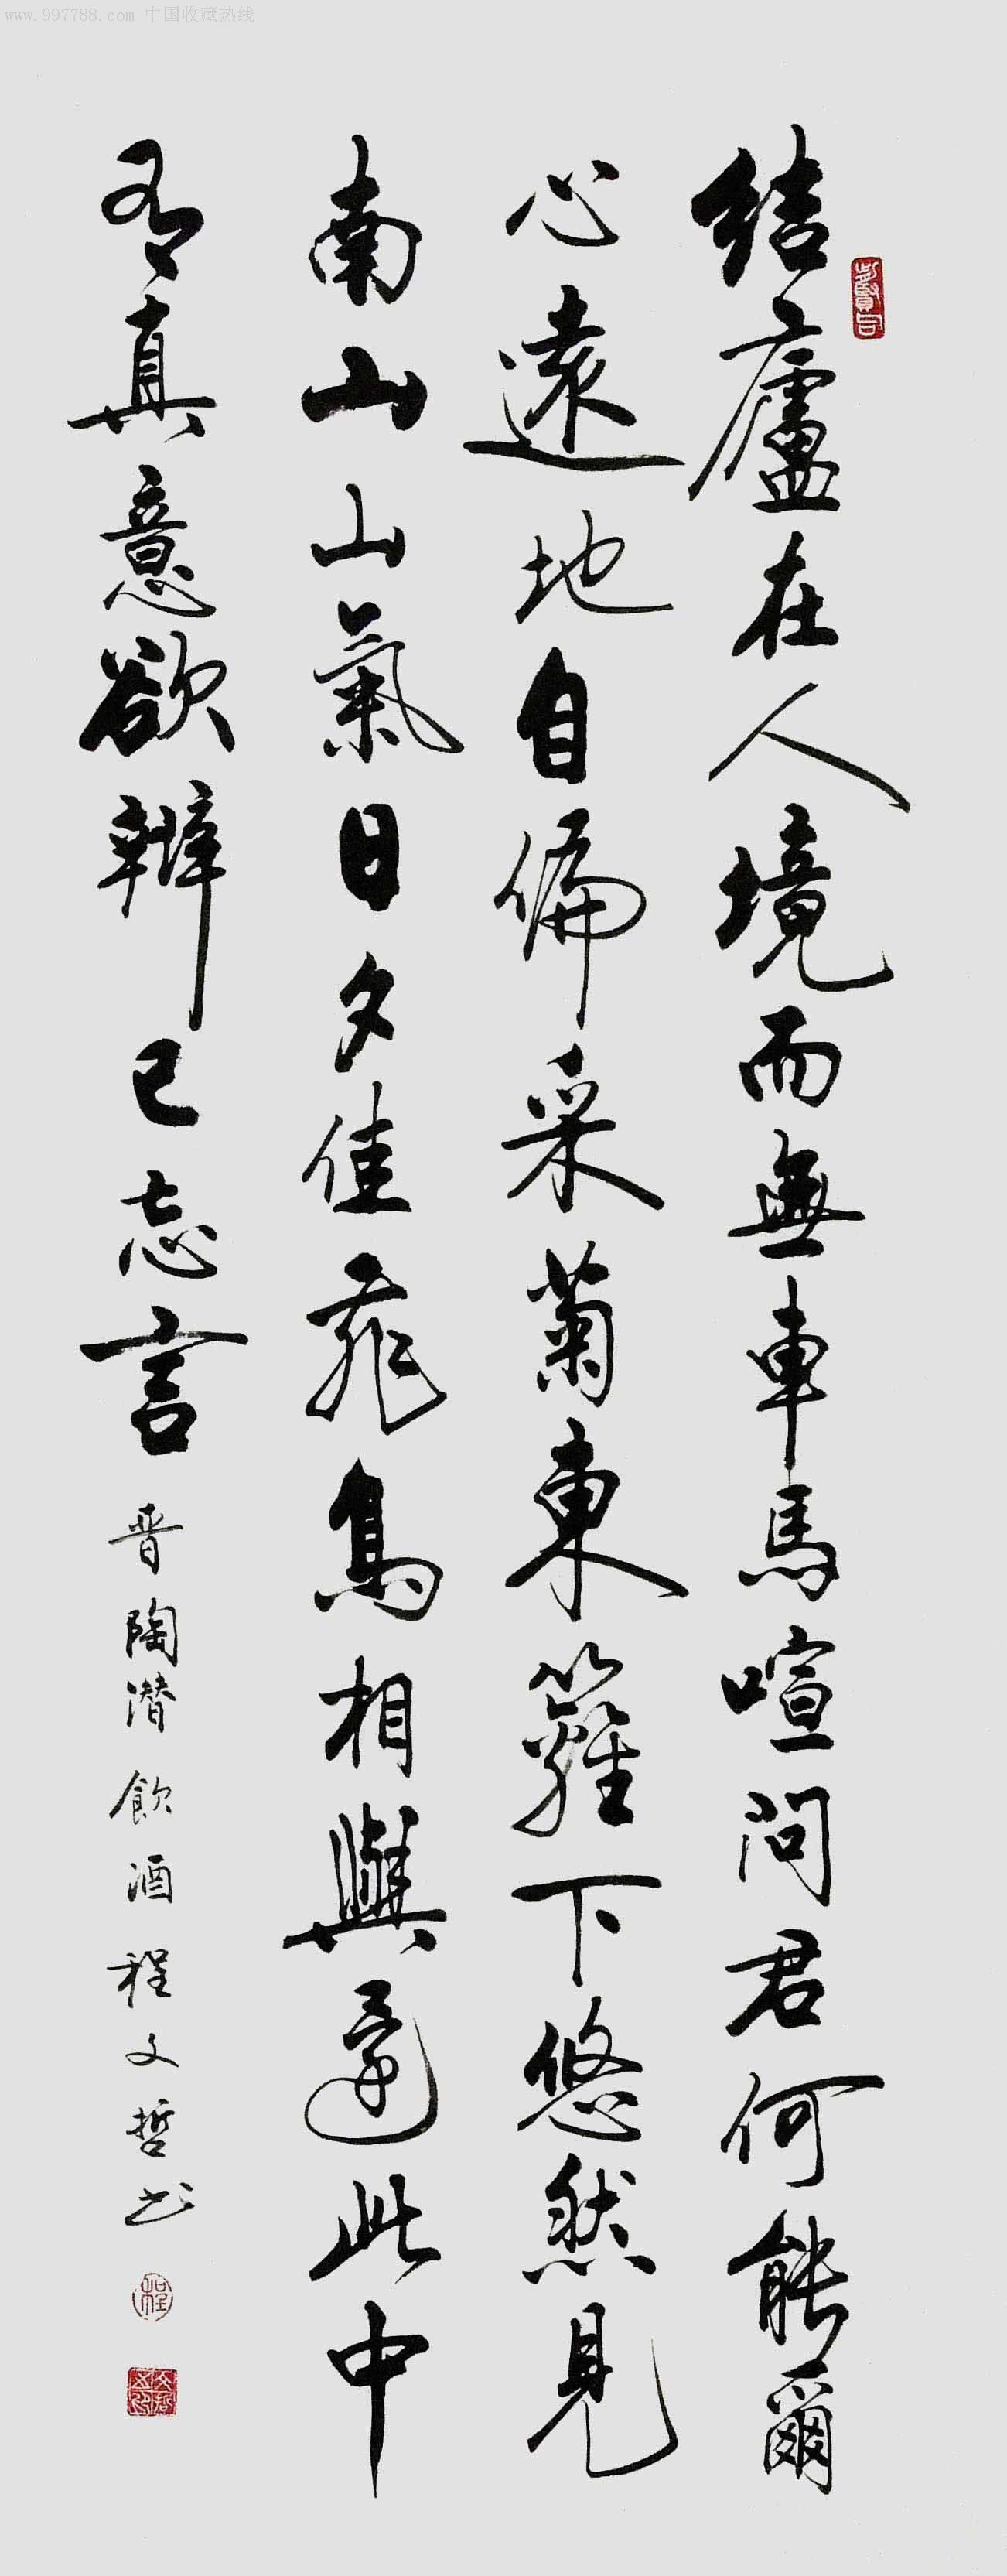 www.997788.com 中国收藏热线
結廬在人境而無車馬喧問君何能爾
心遠地自偏采菊東籬下悠然見
南山山氣日夕佳飛鳥相與還此中
有真意欲辯已忘言
晉陶潛飲酒程文哲书
程